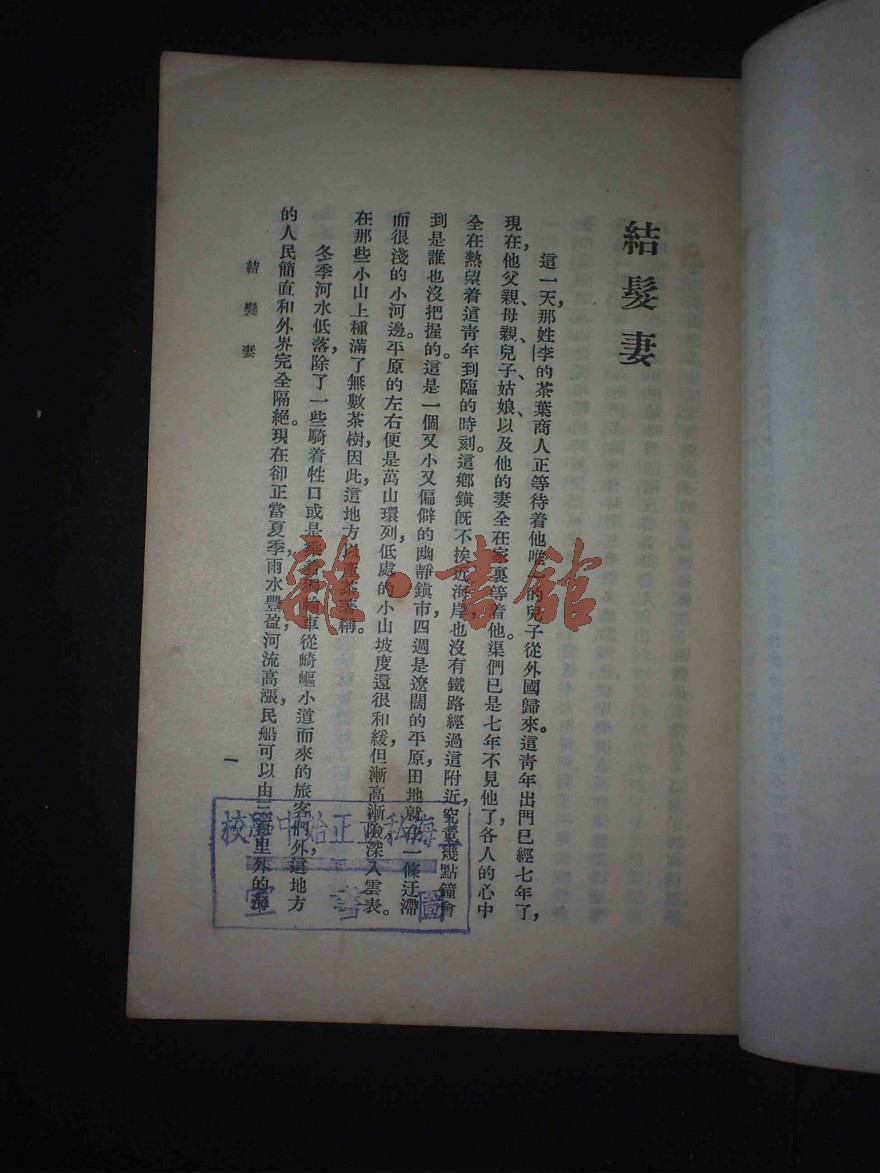 結髮妻
這一天,那姓李的茶葉商人正等待着他唯一的兒子從外國歸來。這青年出門已經七年了,
現在,他父親、母親、兒子、姑娘、以及他的妻全在家裏等着他。渠們已是七年不見他了,各人的心中
全在熱望着這青年到臨的時刻。這鄉鎮旣不挨近海岸,也沒有鐵路經過這附近,究竟幾點鐘會
到是誰也沒把握的。這是一個又小又偏僻的幽靜鎮市,四週是遼闊的平原,田地就在一條迂滯
而很淺的小河邊。平原的左右便是萬山環列,低處的小山坡度還很和緩,但漸高漸險,深入雲表。
在那些小山上種滿了無數茶樹,因此,這地方以產茶著稱。
冬季河水低落,除了一些騎着牲口或是乘着獨輪車從崎嶇小道而來的旅客們外,這地方
的人民簡直和外界完全隔絕。現在卻正當夏季,雨水豐盈,河流高漲,民船可以由三百里外的海
結髮妻
一
上海私立正始中學校
圖書室
雜·書館